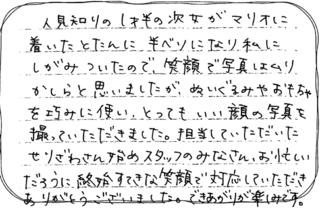 人見知りの1才半の次女がマリオに
着いたとたんに、半ベソになり私に
しがみついたので、笑顔で写真はムリ
かしらと思いましたが、ぬいぐるみやおもちゃ
を巧みに使い、とってもいい顔の写真を
撮っていただきました。担当していただいた
せりざわさん始めスタッフのみなさん、お忙しい
だろうに終始すてきな笑顔で対応していただき
ありがとうございました。できあがりが楽しみです。